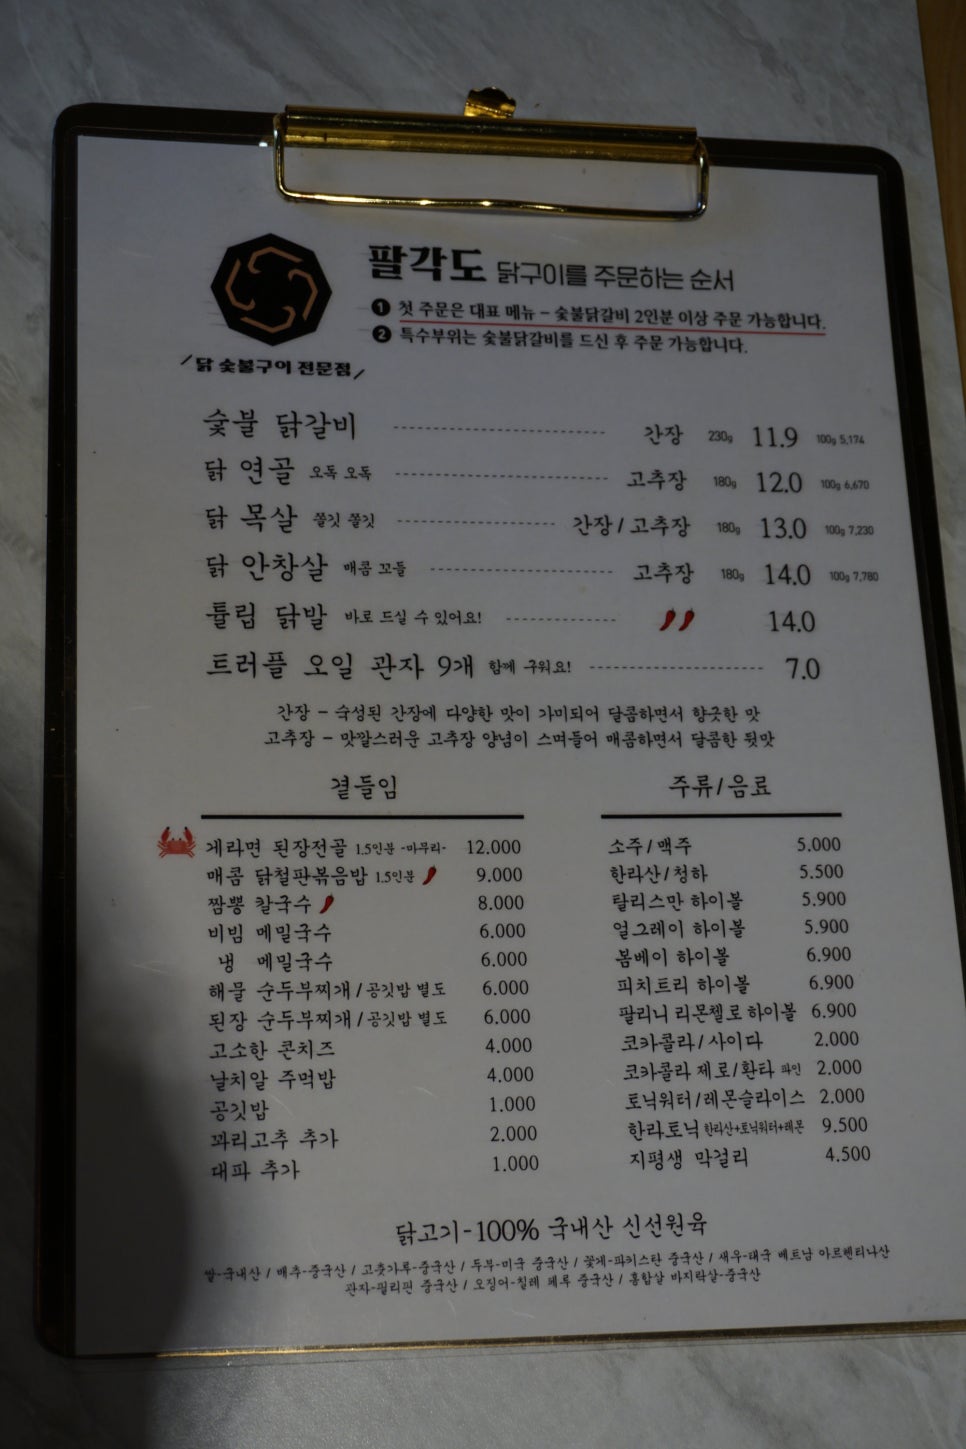 팔각도 닭구이를 주문하는 순서
1 첫 주문은 대표 메뉴 – 숯불닭갈비 2인분 이상 주문 가능합니다.
2 특수부위는 숯불닭갈비를 드신 후 주문 가능합니다.
닭 숯불구이 전문점
숯불 닭갈비 간장 230g 11.9 100g 5,174
닭 연골 오독 오독 고추장 180g 12.0 100g 6,670
닭 목살 쫄깃 쫄깃 간장 / 고추장 180g 13.0 100g 7,230
닭 안창살 매콤 꼬들 고추장 180g 14.0 100g 7,780
튤립 닭발 바로 드실 수 있어요! 14.0
트러플 오일 관자 9개 함께 구워요! 7.0
간장 – 숙성된 간장에 다양한 맛이 가미되어 달콤하면서 향긋한 맛
고추장 – 맛깔스러운 고추장 양념이 스며들어 매콤하면서 달콤한 뒷맛
곁들임
게라면 된장전골 1.5인분 -마무리- 12.000
매콤 닭철판볶음밥 1.5인분 9.000
짬뽕 칼국수 8.000
비빔 메밀국수 6.000
냉 메밀국수 6.000
해물 순두부찌개 / 공깃밥 별도 6.000
된장 순두부찌개 / 공깃밥 별도 6.000
고소한 콘치즈 4.000
날치알 주먹밥 4.000
공깃밥 1.000
꽈리고추 추가 2.000
대파 추가 1.000
주류/음료
소주/맥주 5.000
한라산/청하 5.500
탈리스만 하이볼 5.900
얼그레이 하이볼 5.900
봄베이 하이볼 6.900
피치트리 하이볼 6.900
팔리니 리몬첼로 하이볼 6.900
코카콜라/사이다 2.000
코카콜라 제로/환타 파인 2.000
토닉워터/레몬슬라이스 2.000
한라토닉 한라산+토닉워터+레몬 9.500
지평생 막걸리 4.500
닭고기-100% 국내산 신선원육
쌀-국내산 / 배추-중국산 / 고춧가루-중국산 / 두부-미국 중국산 / 꽃게-파키스탄 중국산 / 새우-태국 베트남 아르헨티나산
관자-필리핀 중국산 / 오징어-칠레 페루 중국산 / 홍합살 바지락살-중국산